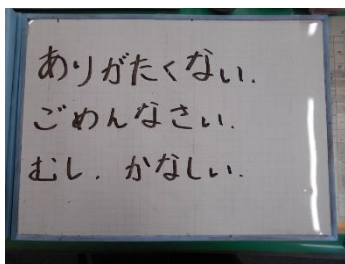 ありがたくない.
ごめんなさい.
むし. かなしい.